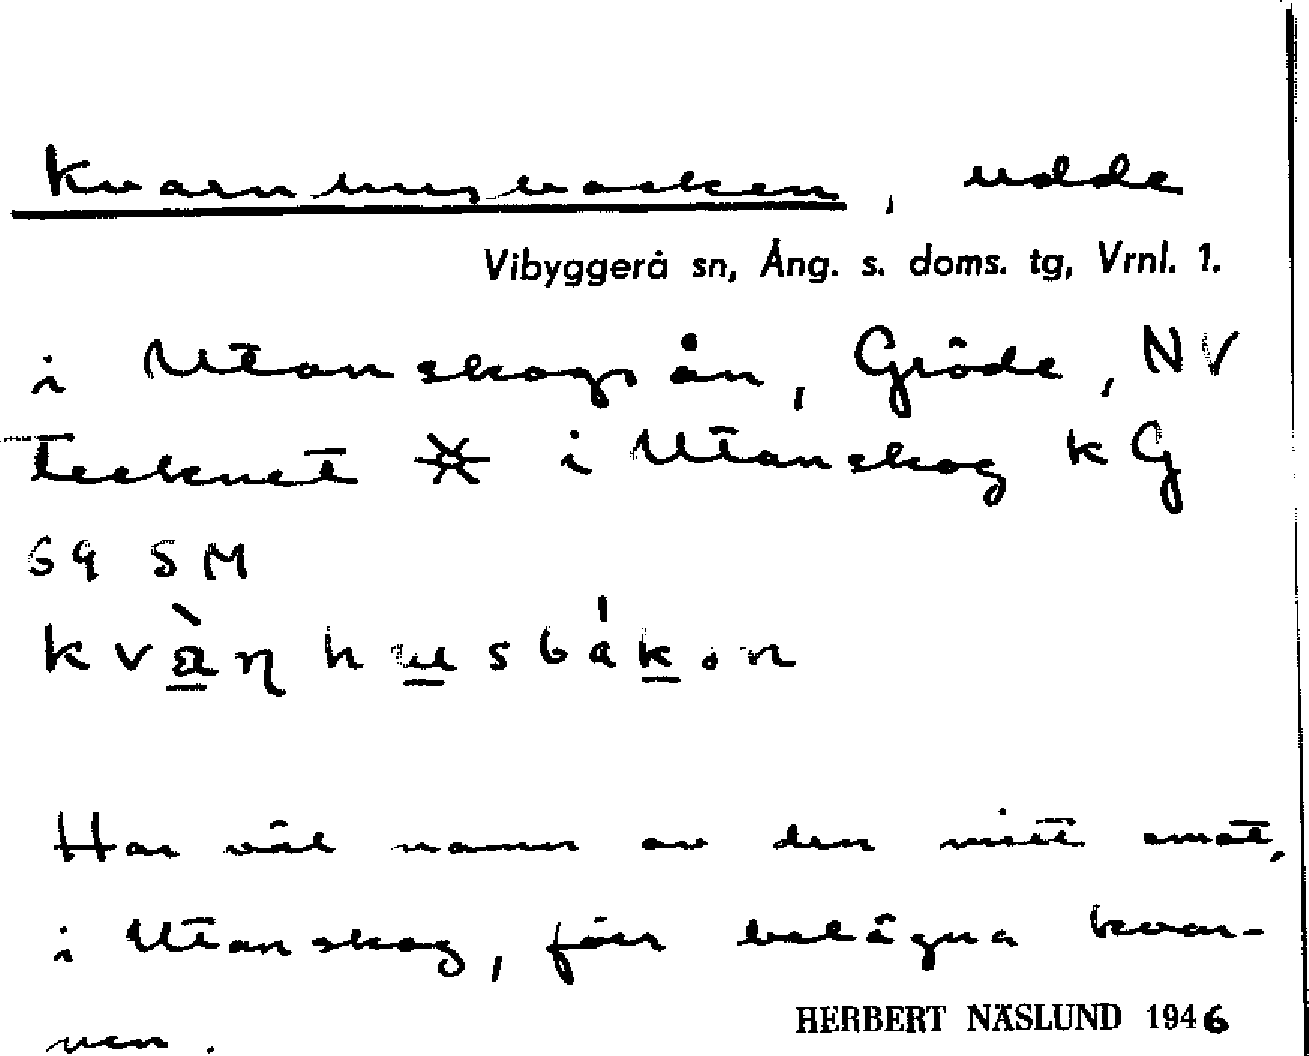 Kvarnhusbacken, udde
Vibyggerå sn, Ång. s. doms. tg, Vrnl. 1.
i Utanskogsån, Gröde, NV
tecknet i Utanskog k G
S9 SM
kvàɳhusbákon
Har väl namn av den mitt emot,
i Utanskog, förr belägna kvar-
nen.
HERBERT NÄSLUND 1946